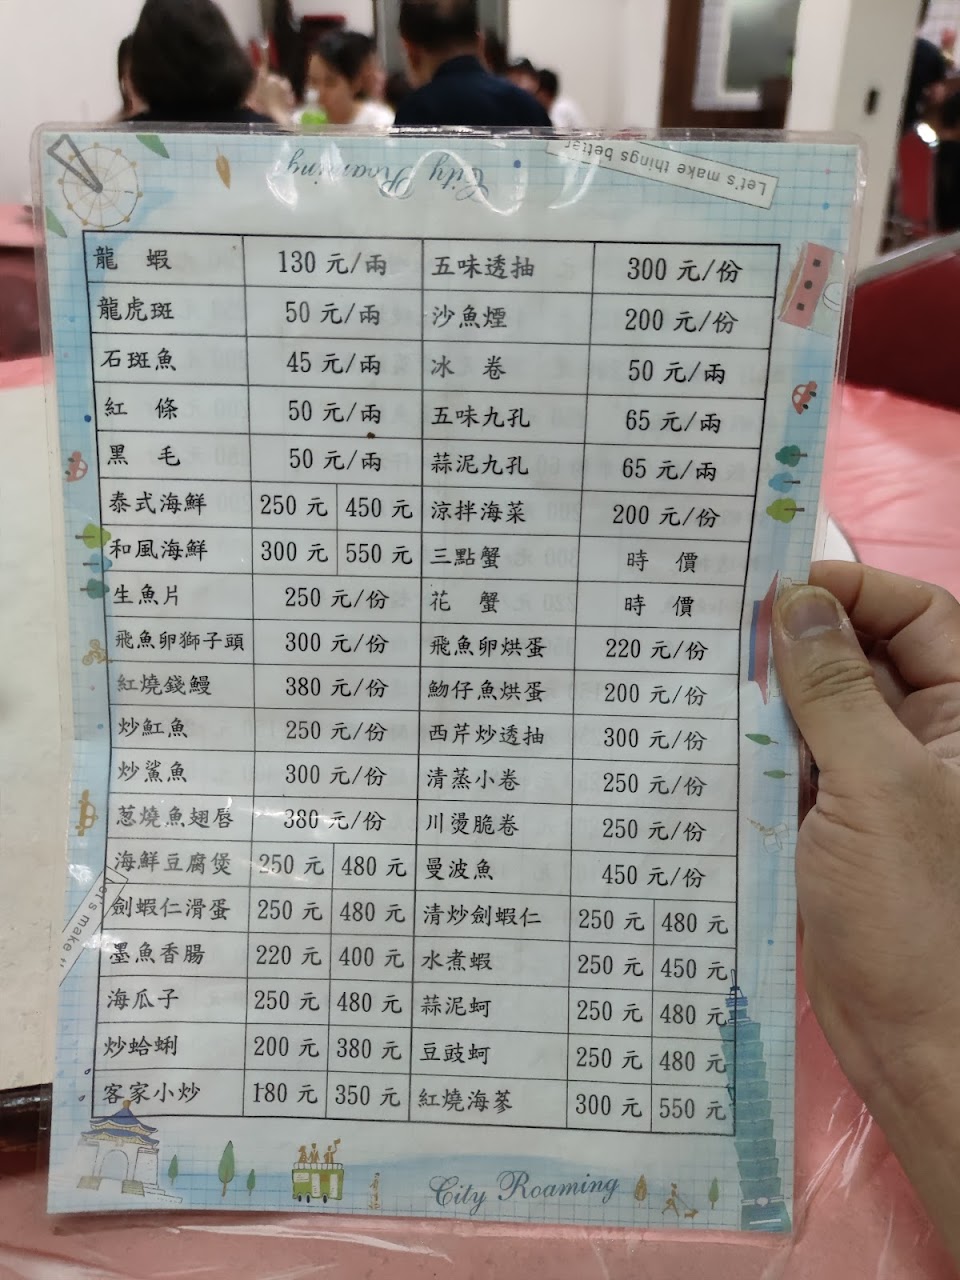 City Roaming
Let's make things better
龍 蝦 130 元/兩 五味透抽 300 元/份
龍虎斑 50 元/兩 沙魚煙 200 元/份
石斑魚 45 元/兩 冰 卷 50 元/兩
紅 條 50 元/兩 五味九孔 65 元/兩
黑 毛 50 元/兩 蒜泥九孔 65 元/兩
泰式海鮮 250 元 450 元 涼拌海菜 200 元/份
和風海鮮 300 元 550 元 三點蟹 時 價
生魚片 250 元/份 花 蟹 時 價
飛魚卵獅子頭 300 元/份 飛魚卵烘蛋 220 元/份
紅燒錢鰻 380 元/份 魩仔魚烘蛋 200 元/份
炒魟魚 250 元/份 西芹炒透抽 300 元/份
炒鯊魚 300 元/份 清蒸小卷 250 元/份
蔥燒魚翅唇 380 元/份 川燙脆卷 250 元/份
海鮮豆腐煲 250 元 480 元 曼波魚 450 元/份
劍蝦仁滑蛋 250 元 480 元 清炒劍蝦仁 250 元 480 元
墨魚香腸 220 元 400 元 水煮蝦 250 元 450 元
海瓜子 250 元 480 元 蒜泥蚵 250 元 480 元
炒蛤蜊 200 元 380 元 豆豉蚵 250 元 480 元
客家小炒 180 元 350 元 紅燒海蔘 300 元 550 元
Let's make
City Roaming